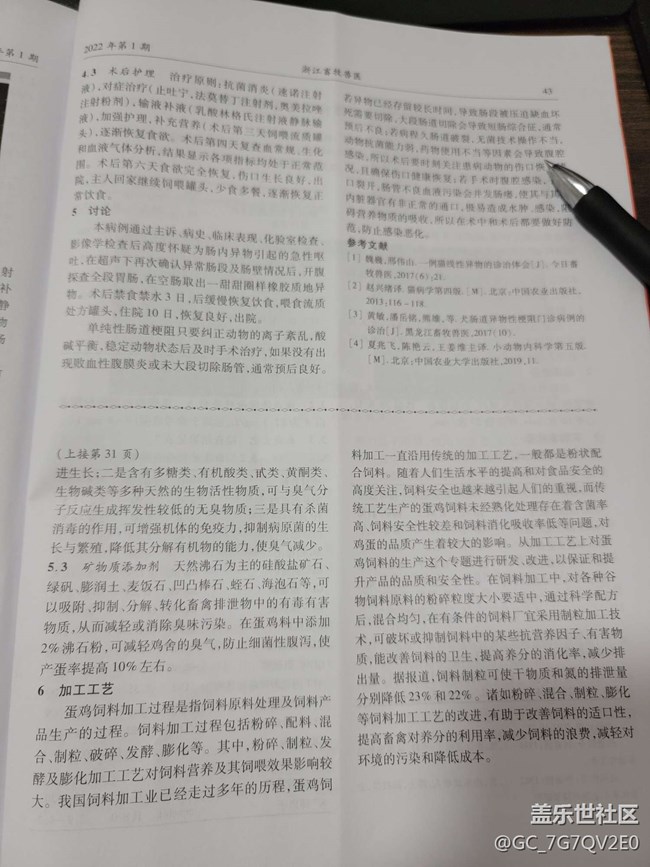 2022 年第 1 期
浙江畜牧兽医
43
4.3 术后护理 治疗原则:抗菌消炎(速诺注射
液),对症治疗(止吐宁,法莫替丁注射剂,奥美拉唑
注射粉剂),输液补液(乳酸林格氏注射液静脉输
液),加强护理,补充营养(术后第三天饲喂流质罐
头),逐渐恢复食欲。术后第四天复查血常规、生化
和血液气体分析,结果显示各项指标均处于正常范
围。术后第六天食欲完全恢复,伤口生长良好,出
院,主人回家继续饲喂罐头,少食多餐,逐渐恢复正
常饮食。
5 讨论
本病例通过主诉、病史、临床表现、化验室检查、
影像学检查后高度怀疑为肠内异物引起的急性呕
吐,在超声下再次确认异常肠段及肠壁情况后,开腹
探查全段胃肠,在空肠取出一甜甜圈样橡胶质地异
物。术后禁食禁水 3 日,后缓慢恢复饮食,喂食流质
处方罐头,住院 10 日,恢复良好,出院。
单纯性肠道梗阻只要纠正动物的离子紊乱,酸
碱平衡,稳定动物状态后及时手术治疗,如果没有出
现败血性腹膜炎或未大段切除肠管,通常预后良好。
若异物已经存留较长时间,导致肠段被压迫缺血坏
死需要切除,大段肠道切除会导致短肠综合征,通常
预后不良;若病程久肠道破裂,无菌技术操作不当,
动物抗菌能力弱,药物使用不当等因素会导致腹腔
感染,所以术后要时刻关注患病动物的伤口恢
况,且确保伤口健康恢复;若手术时腹腔感染,
口裂开,肠管不良血液污染会并发肠瘘,使其与
内脏器官有非正常的通口,极易造成水肿、感染,
碍营养物质的吸收,所以在术中和术后都要做好防
范,防止感染恶化。
参考文献
[1] 魏巍,邢伟山.一例猫线性异物的诊治体会[J].今日畜
牧兽医,2017(6):21.
[2] 赵兴绪译.猫病学第四版.[M].北京:中国农业出版社,
2013:116-118.
[3] 黄敏,潘岳储,熊瑾,等.犬肠道异物性梗阻门诊病例的
诊治[J].黑龙江畜牧兽医,2017(10).
[4] 夏兆飞,陈艳云,王姜维主译.小动物内科学第五版.
[M].北京:中国农业大学出版社,2019,11.
(上接第 31 页)
进生长;二是含有多糖类、有机酸类、甙类、黄酮类、
生物碱类等多种天然的生物活性物质,可与臭气分
子反应生成挥发性较低的无臭物质;三是具有杀菌
消毒的作用,可增强机体的免疫力,抑制病原菌的生
长与繁殖,降低其分解有机物的能力,使臭气减少。
5.3 矿物质添加剂 天然沸石为主的硅酸盐矿石、
绿矾、膨润土、麦饭石、凹凸棒石、蛭石、海泡石等,可
以吸附、抑制、分解、转化畜禽排泄物中的有毒有害
物质,从而减轻或消除臭味污染。在蛋鸡料中添加
2% 沸石粉,可减轻鸡舍的臭气,防止细菌性腹泻,使
产蛋率提高 10% 左右。
6 加工工艺
蛋鸡饲料加工过程是指饲料原料处理及饲料产
品生产的过程。饲料加工过程包括粉碎、配料、混
合、制粒、破碎、发酵、膨化等。其中,粉碎、制粒、发
酵及膨化加工工艺对饲料营养及其饲喂效果影响较
大。我国饲料加工业已经走过多年的历程,蛋鸡饲
料加工一直沿用传统的加工工艺,一般都是粉状配
合饲料。随着人们生活水平的提高和对食品安全的
高度关注,饲料安全也越来越引起人们的重视,而传
统工艺生产的蛋鸡饲料未经熟化处理存在着含菌率
高、饲料安全性较差和饲料消化吸收率低等问题,对
鸡蛋的品质产生着较大的影响。从加工工艺上对蛋
鸡饲料的生产这个专题进行研发、改进,以保证和提
升产品的品质和安全性。在饲料加工中,对各种谷
物饲料原料的粉碎粒度大小要适中,通过科学配方
后,混合均匀,在有条件的饲料厂宜采用制粒加工技
术,可破坏或抑制饲料中的某些抗营养因子、有害物
质,能改善饲料的卫生,提高养分的消化率,减少排
出量。据报道,饲料制粒可使干物质和氮的排泄量
分别降低 23% 和 22%。诸如粉碎、混合、制粒、膨化
等饲料加工工艺的改进,有助于改善饲料的适口性,
提高畜禽对养分的利用率,减少饲料的浪费,减轻对
环境的污染和降低成本。
盖乐世社区
@GC_7G7QV2E0